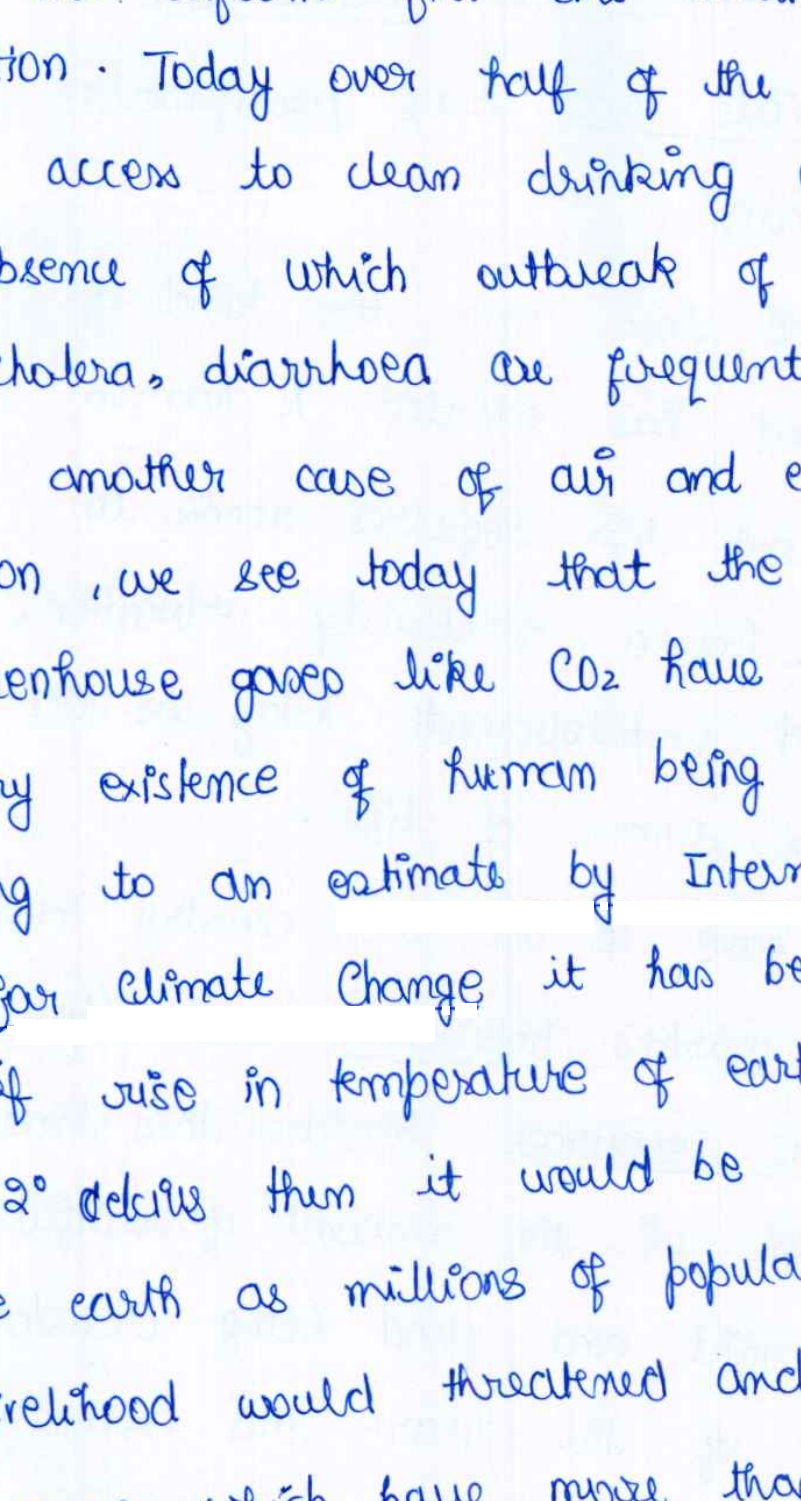 tion. Today over half of the
access to clean drinking
bsence of which outbreak of
cholera, diarrhoea are frequent
another case of air and e
on, we see today that the
enhouse gases like CO2 have
ry existence of human being
ng to an estimate by Intern
for Climate Change it has be
if rise in temperature of eart
2° delcius then it would be
e earth as millions of popula
velihood would threatened and
which have more tha